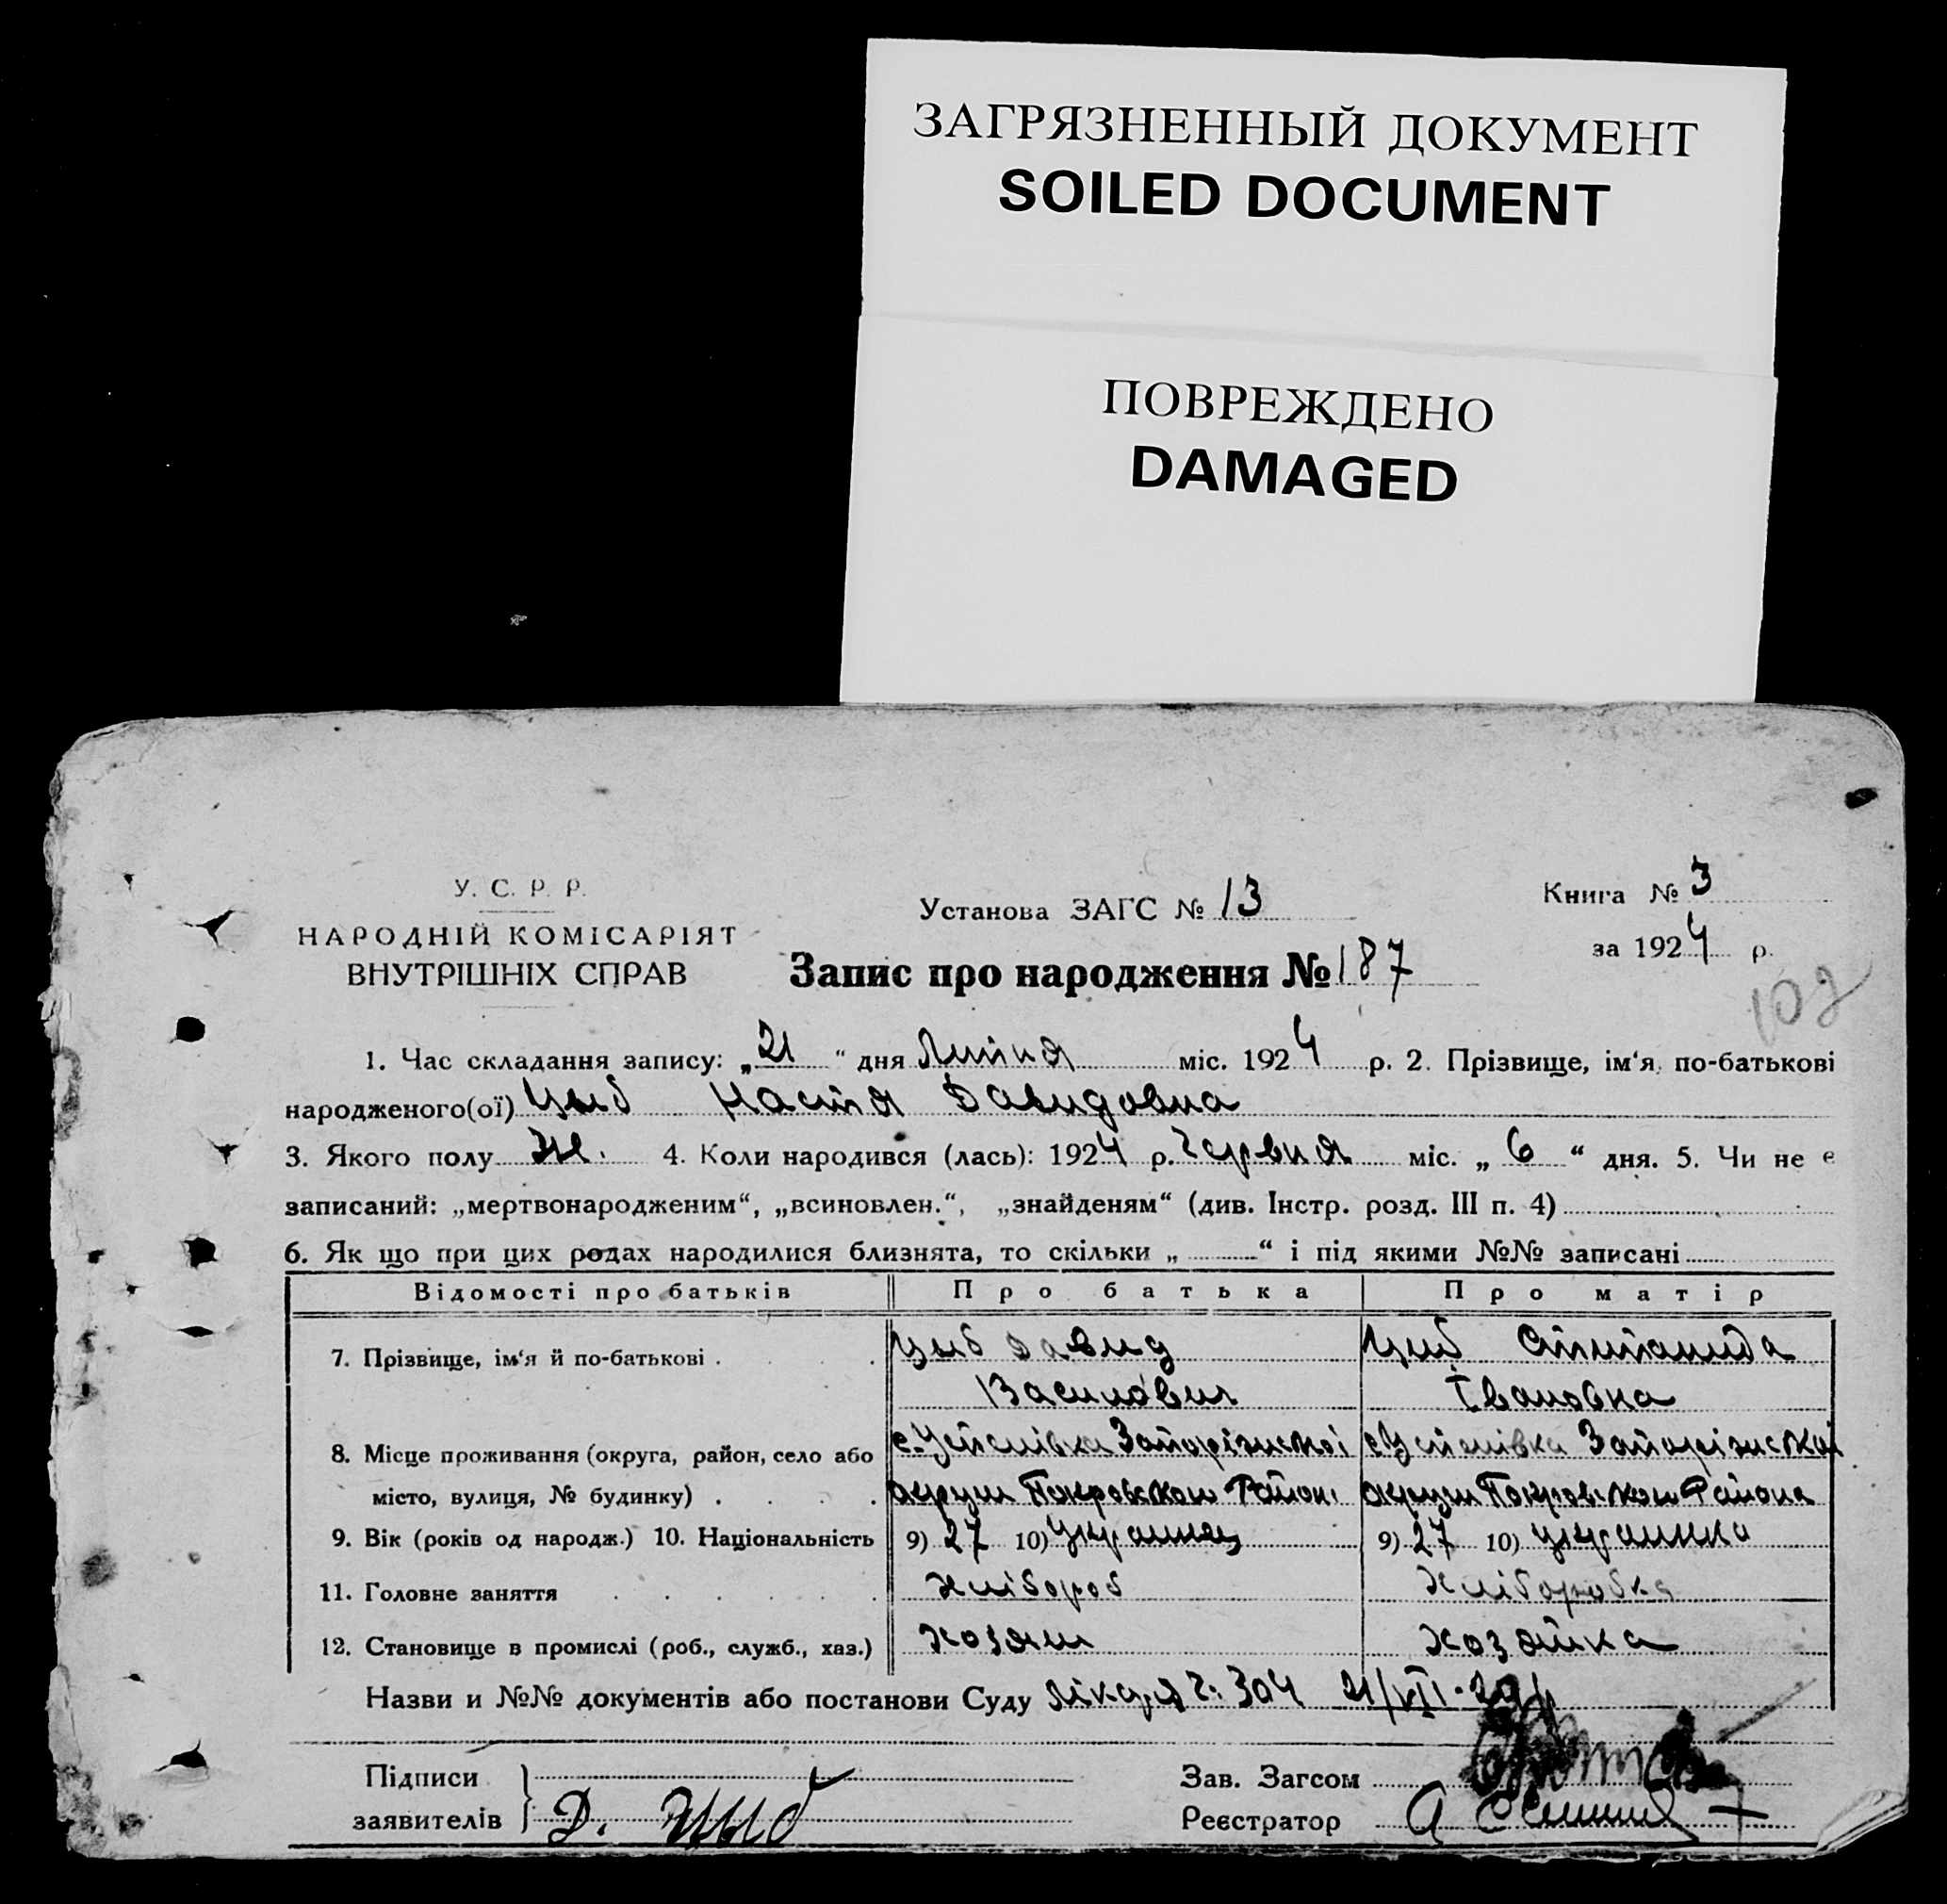 ЗАГРЯЗНЕННЫЙ ДОКУМЕНТ
SOILED DOCUMENT
ПОВРЕЖДЕНО
DAMAGED
У. С. Р. Р.
НАРОДНІЙ КОМІСАРІЯТ
ВНУТРІШНІХ СПРАВ
Установа ЗАГС № 13
Запис про народження № 187
Книга № 3
за 1924 р.
102
1. Час складання запису: „21“ дня Липня міс. 1924 р. 2. Прізвище, ім‘я, по-батькові
народженого(ої) Цыб Настя Давидовна
3. Якого полу Же. 4. Коли народився (лась): 1924 р. Червня міс. „6“ дня. 5. Чи не є
записаний: „мертвонародженим“, „всиновлен.“, „знайденям“ (див. Інстр. розд. III п. 4)
6. Як що при цих родах народилися близнята, то скільки „ “ і під якими №№ записані
Відомості про батьків Про батька Про матір
7. Прізвище, ім‘я й по-батькові . Цыб Давид Циб Степанида
Василович Івановна
8. Місце проживання (округа, район, село або с. Успенівка Запорізської с. Успенівка Запорізської
місто, вулиця, № будинку) . округи Покровського Району округи Покровського Района
9. Вік (років од народж.) 10. Національність 9) 27 10) Украинец 9) 27 10) украинка
11. Головне заняття хлібороб хліборобка
12. Становище в промислі (роб., служб., хаз.) хозяин хозяйка
Назви и №№ документів або постанови Суду лікаря ч. 304 21/VII-24
Підписи
заявителів Д. Цыб
Зав. Загсом
Реєстратор А